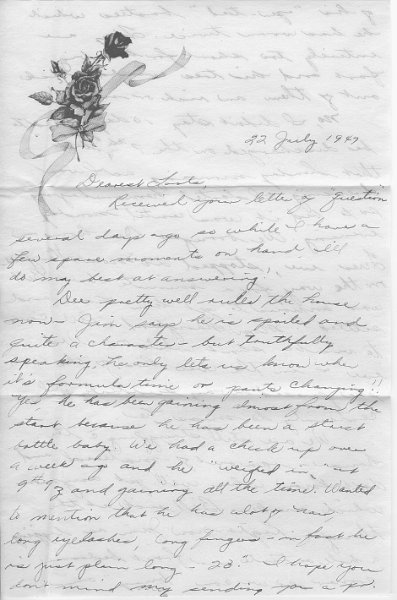 22 July 1949
Dearest
Received your letter of "question"
several days ago so while I have a
few spare moments on hand I'll
do my best at answering,
Dee pretty well rules the house
now - Jim says he is spoiled and
quite a character - but truthfully
speaking, he only lets us know when
it's formula time or pants changing!!
Yes he has been gaining almost from the
start because he has been a strict
bottle baby. We had a check up over
a week ago and he "weighed in" at
and gaining all the time. Wanted
to mention that he has a lot of hair,
long eyelashes, long fingers - in fact he
is just plain long - 23" I hope you
don't mind my sending you a